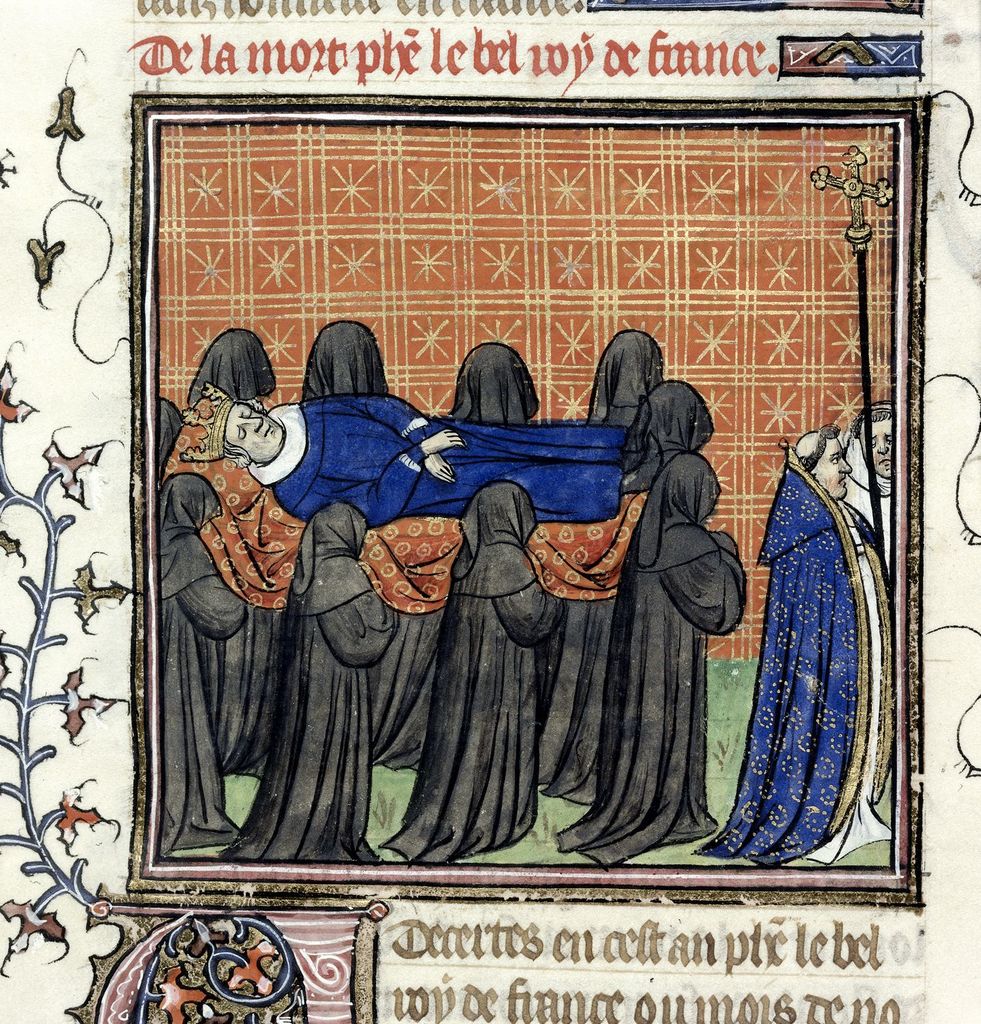 De la mort phē le bel roy de france.
Decertes en cest an phē le bel
roy de france ou mois de no